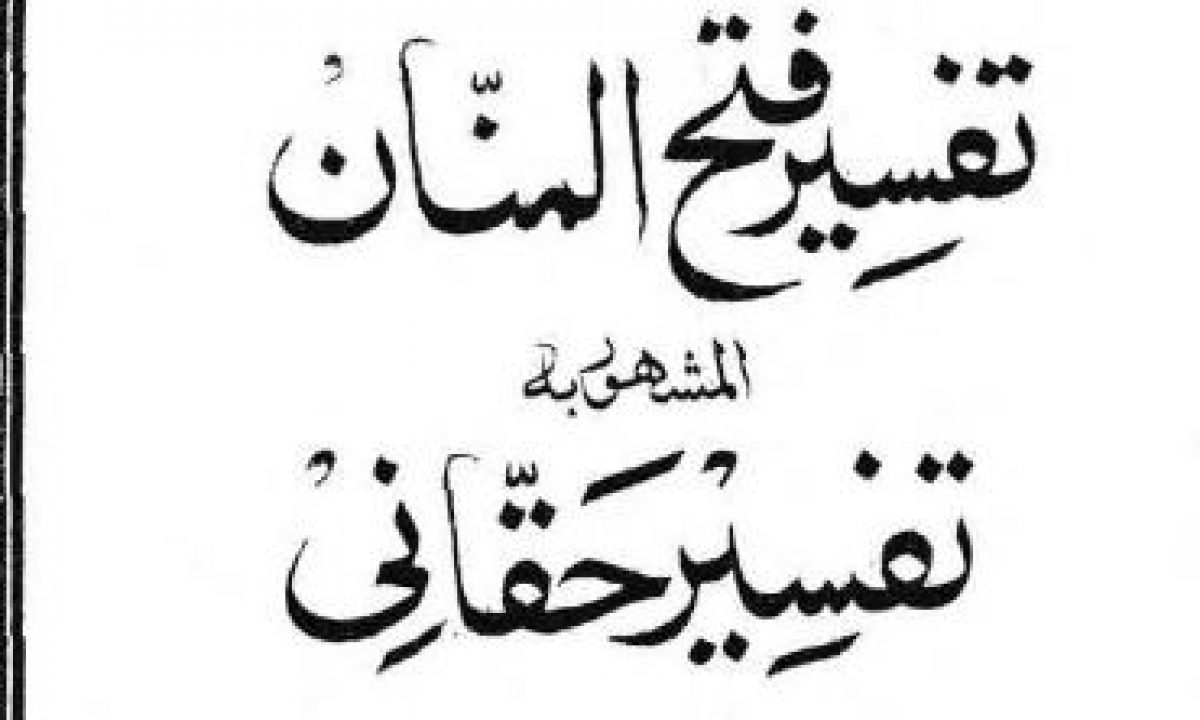 تفسِیر فتح المنّان
المشہور بہ
تفسِیْر حَقّانِیْ